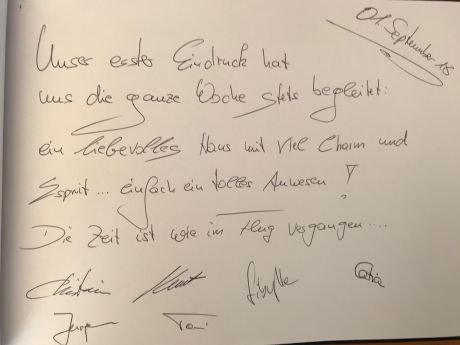 01. September 18
Unser erster Eindruck hat
uns die ganze Woche stets begleitet:
ein liebevolles Haus mit viel Charm und
Esprit... einfach ein tolles Anwesen !
Die Zeit ist wie im Flug vergangen....
Sibylle